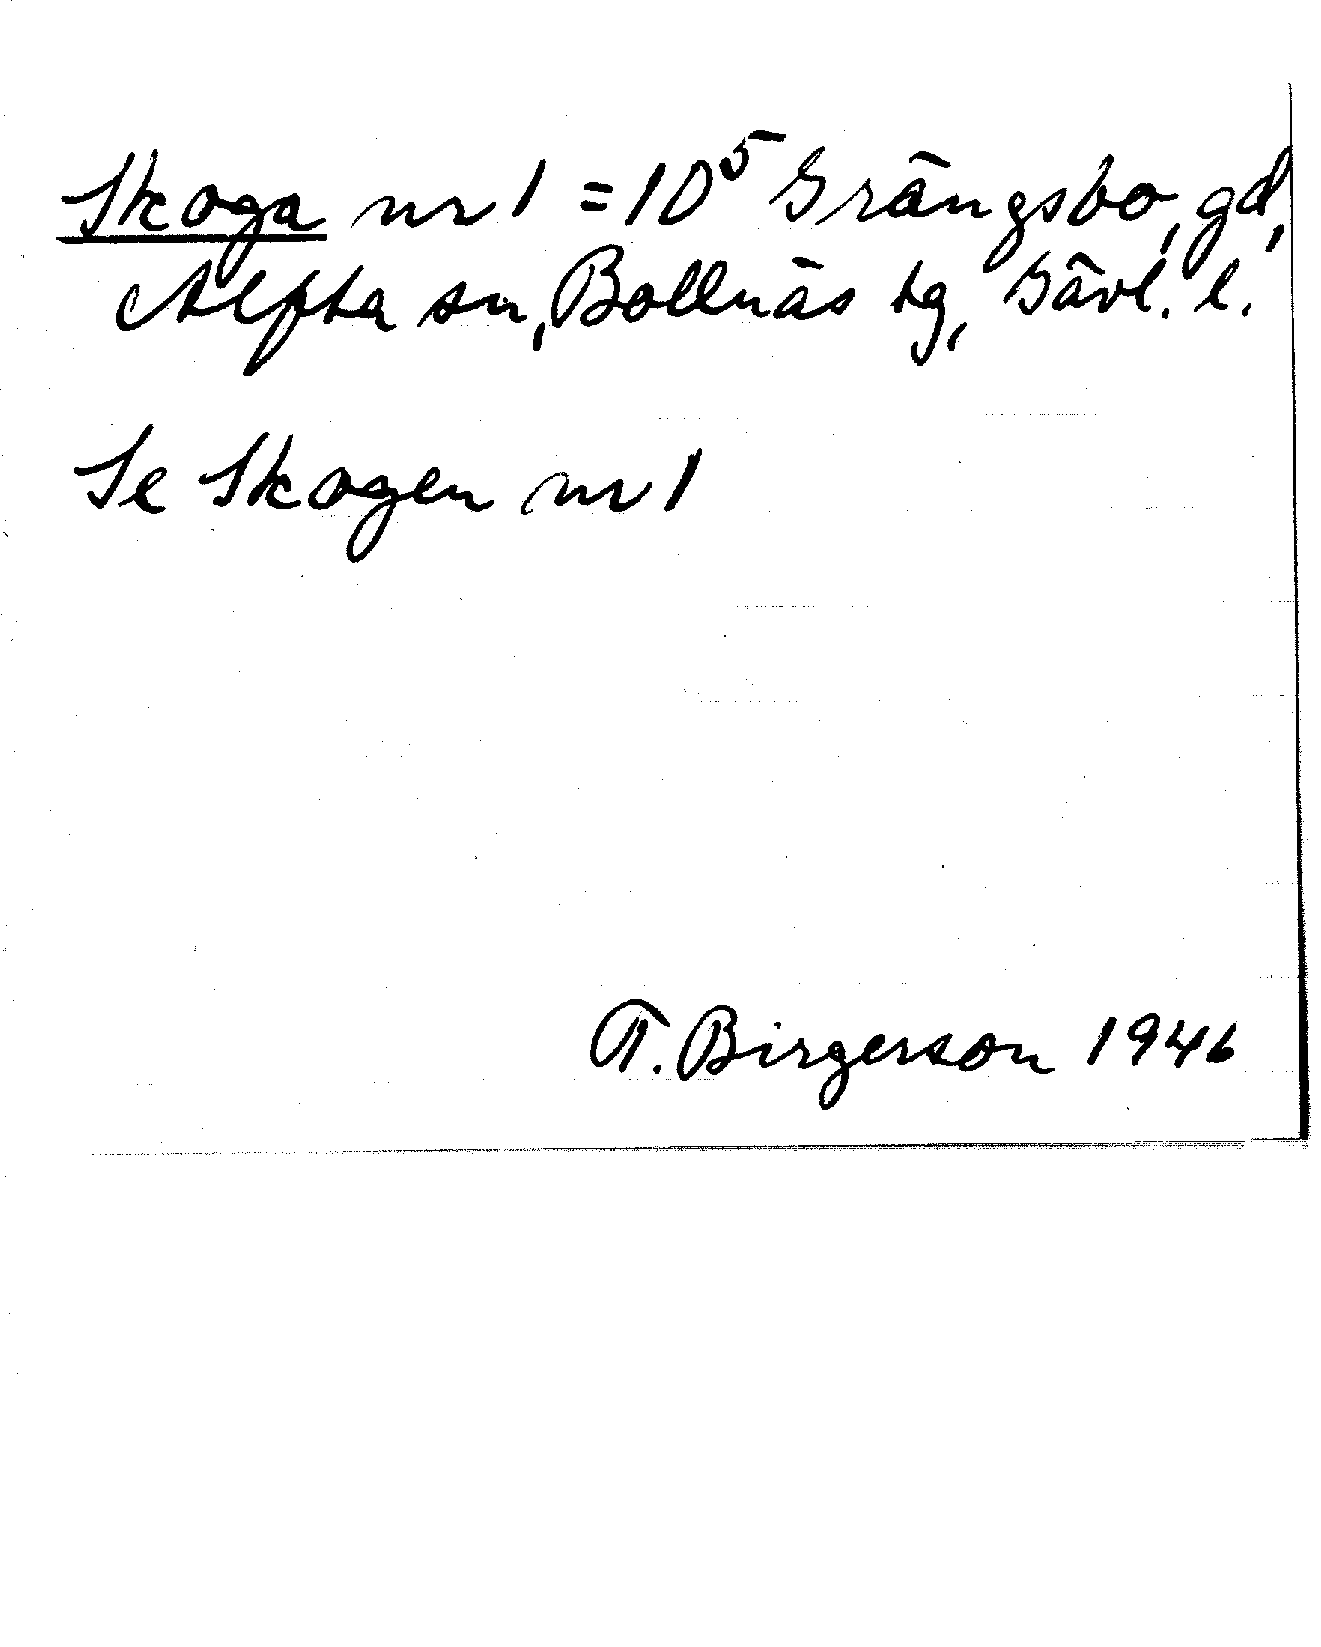 Skoga nr 1 = 10⁵ Grängsbo, gd,
Alfta sn, Bollnäs tg, Gävl. l.
Se Skogen nr 1
T. Birgerson 1946